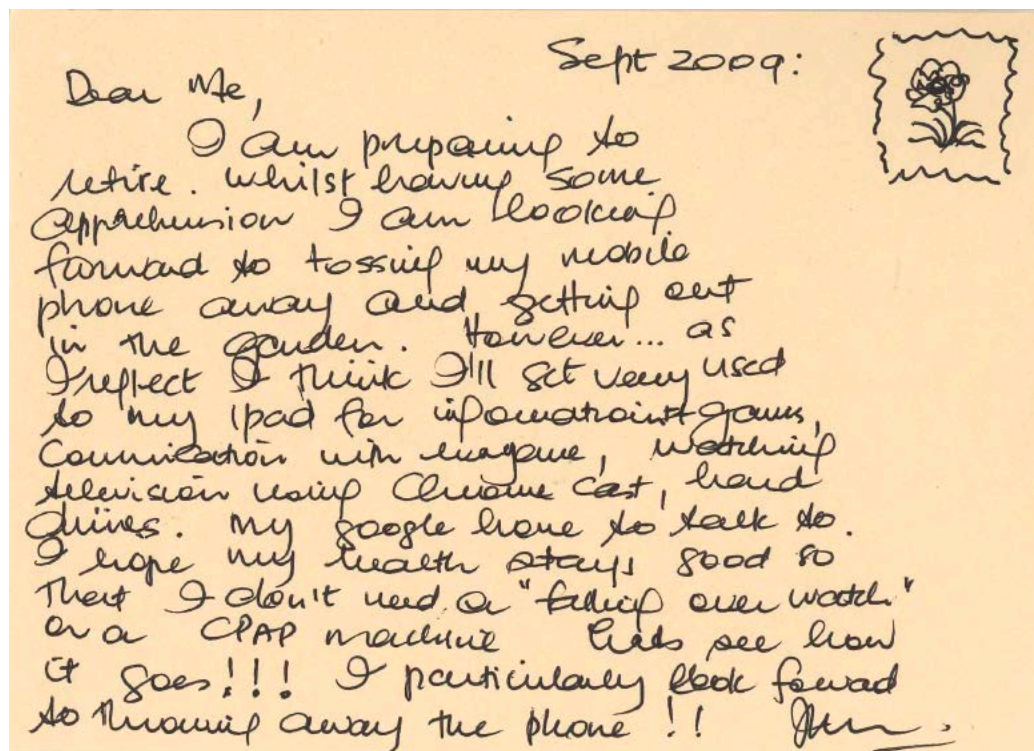 Sept 2009:
Dear Me,
I am preparing to
retire. Whilst having some
apprehension I am looking
forward to tossing my mobile
phone away and getting out
in the garden. However... as
I reflect I think I'll get very used
to my ipad for information + games,
Communication with everyone, watching
television using Chrome cast, hard
drives. My google home to talk to.
I hope my health stays good so
that I don't need a "falling over watch"
or a CPAP machine Lets see how
it goes!!! I particularly look foward
to throwing away the phone!!